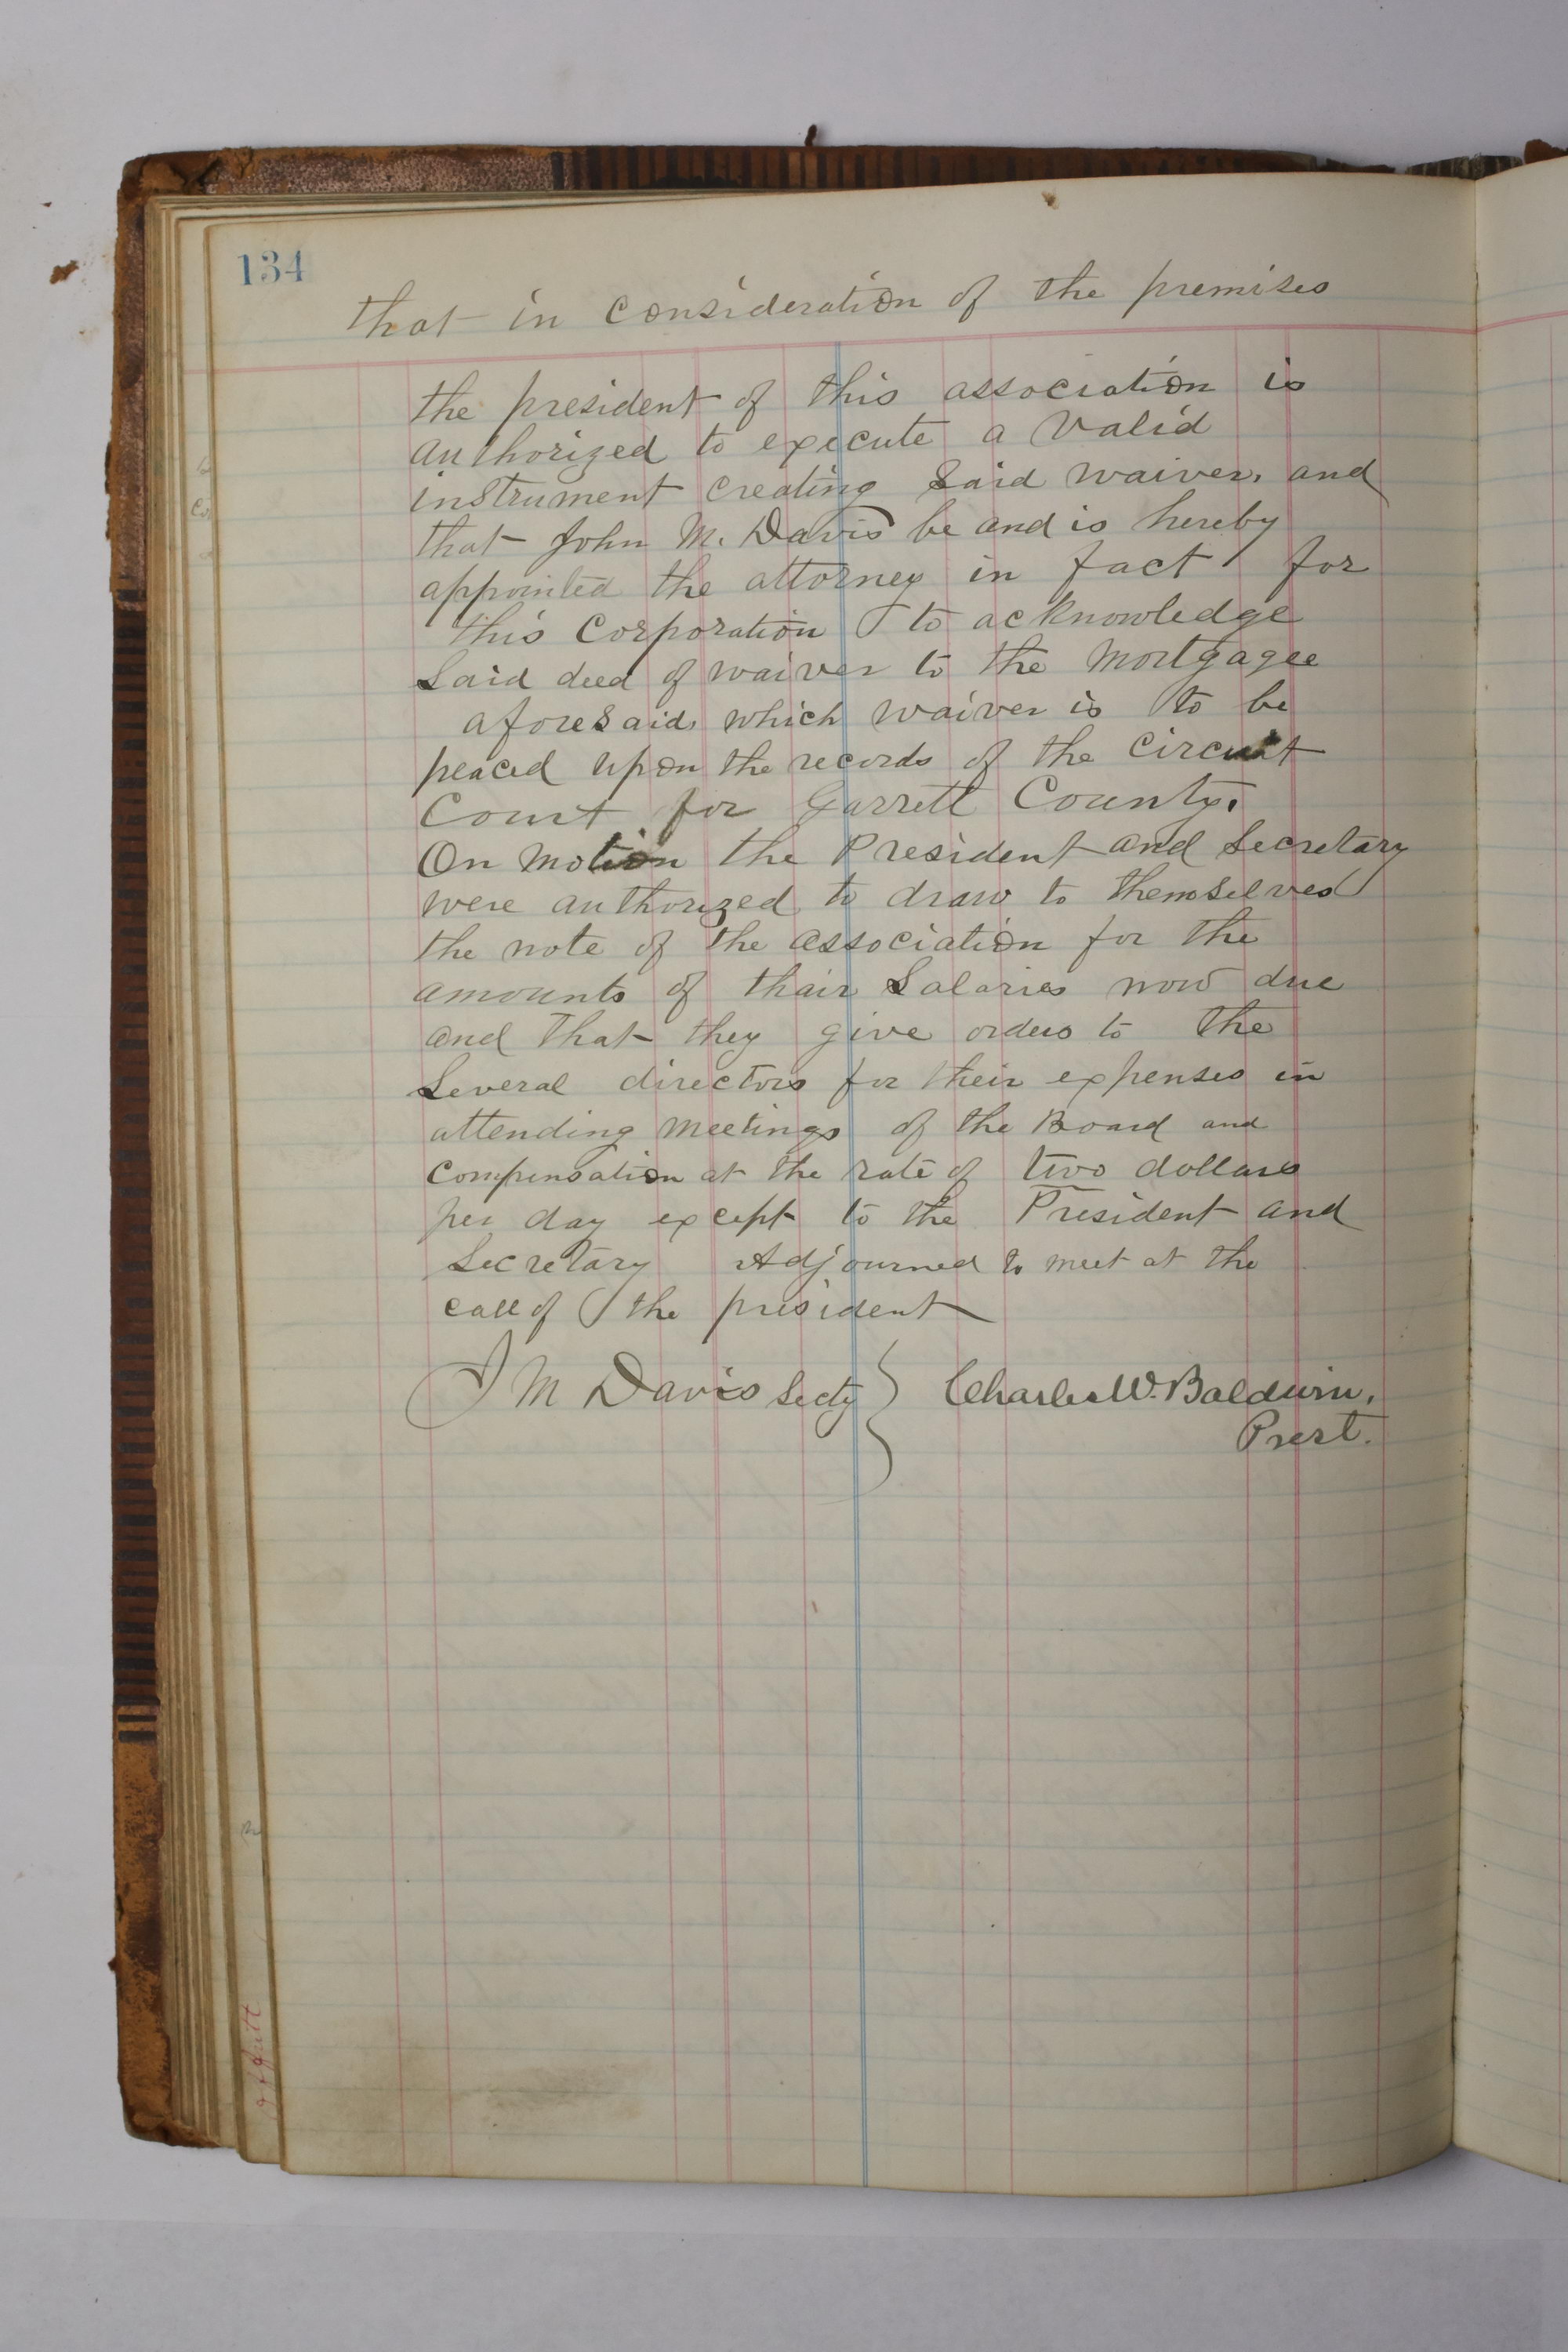 134
that in consideration of the premises
the president of this association is
authorized to execute a valid
instrument creating said waiver, and
that John M. Davis be and is hereby
appointed the attorney in fact for
this Corporation to acknowledge
said deed of waiver to the Mortgagee
aforesaid, which waiver is to be
peaced upon the records of the Circuit
Court for Garrett County.
On motion the President and Secretary
were authorized to draw to themselves
the note of the association for the
amounts of thair Salaries now due
and that they give orders to the
Several directors for their expenses in
attending meetings of the Board and
compensation at the rate of two dollars
per day except to the President and
Secretary Adjourned to meet at the
call of the president
J M Davis Secty } Charles W. Baldwin,
Prest.